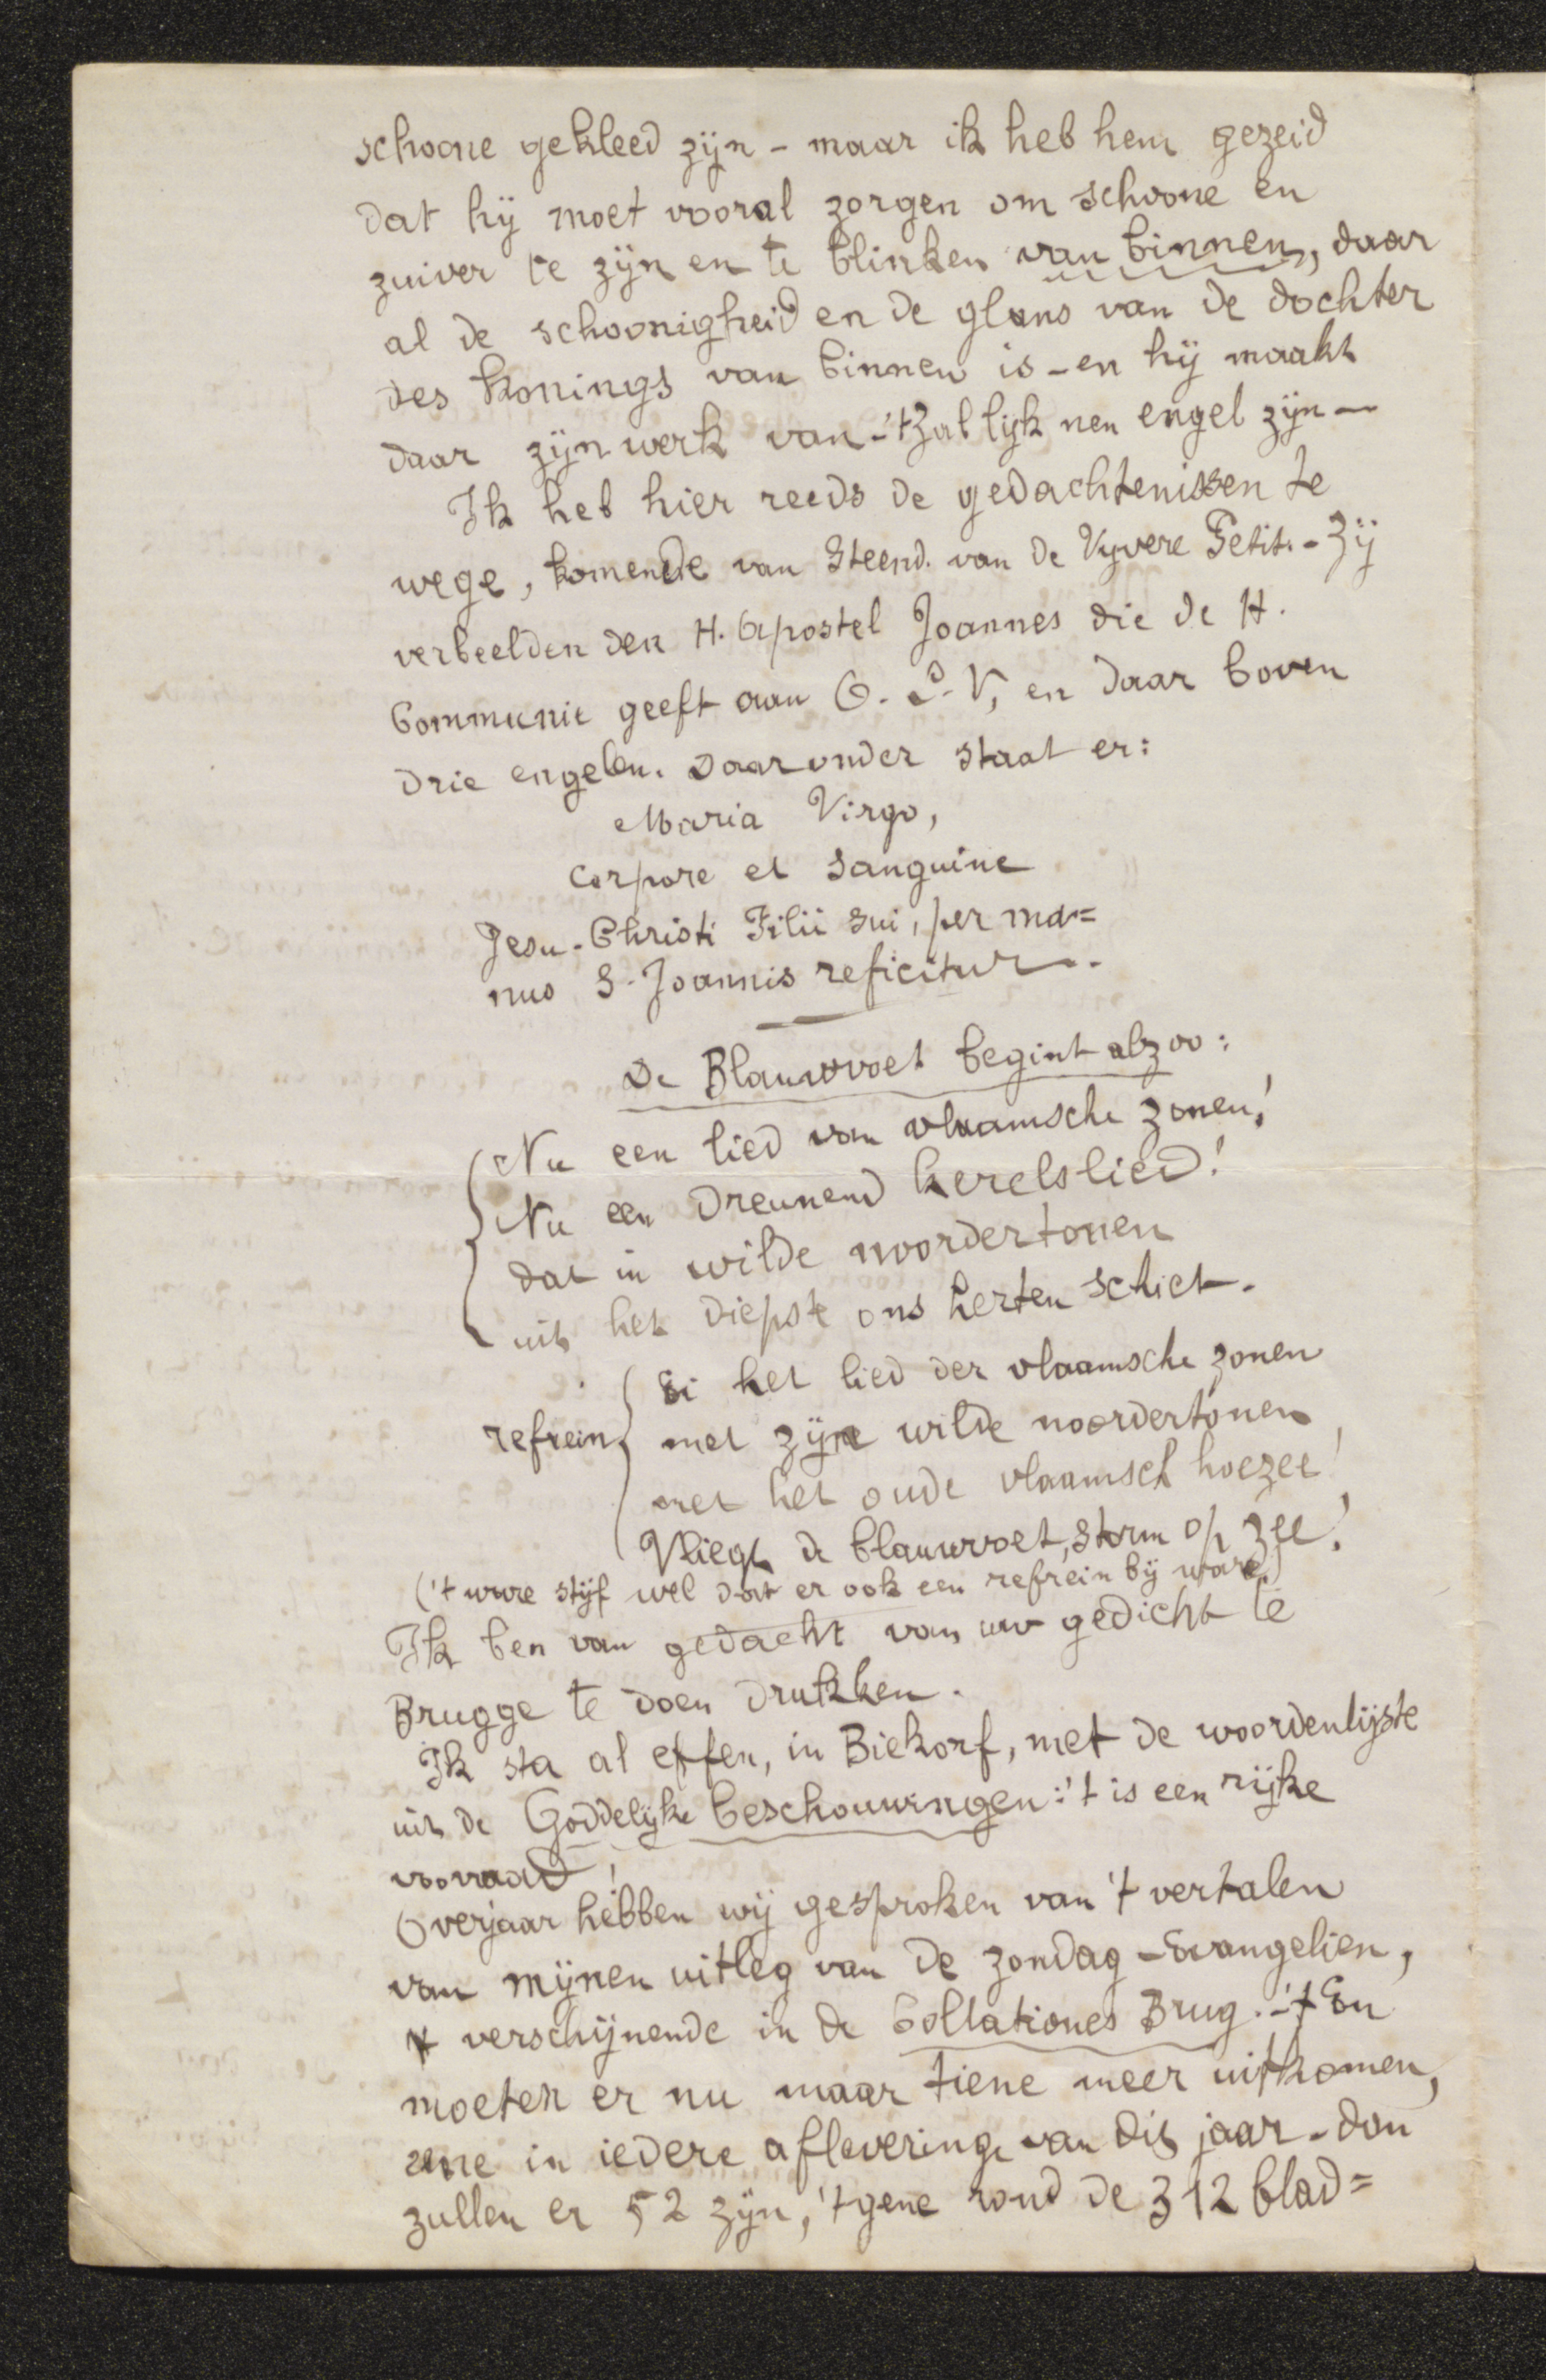 schoone gekleed zijn - maar ik heb hem gezeid
dat hij moet vooral zorgen om schoone en
zuiver te zijn en te blinken van binnen, daar
al de schoonigheid en de glans van de dochter
des konings van binnen is - en hij maakt
daar zijn werk van - 't Zal lijk nen engel zijn -
Ik heb hier reeds de gedachtenissen te
wege, komende van Steend. van de Vyvere Petit. - Zij
verbeelden den H. Apostel Joannes die de H.
Communie geeft aan O. L. V, en daar boven
drie engelen. Daaronder staat er:
Maria Virgo,
Corpore et Sanguine
Jesu-Christi Filii sui, per ma=
nus S. Joannis reficitur.
De Blauwvoet begint alzoo:
Nu een lied van vlaamsche zonen!
Nu een dreunend kerelslied!
dat in wilde noordertonen
uit het diepste ons herten schiet.
Ei het lied der vlaamsche zonen
refrein met zijne wilde noordertonen
met het oude vlaamsch hoezee!
Vliegt de blauwvoet, storm op zee!
('t ware stijf wel dat er ook een refrein bij ware)
Ik ben van gedacht van uw gedicht te
Brugge te doen drukken.
Ik sta al effen, in Biekorf, met de woordenlijste
uit de Goddelijke beschouwingen: 't is een rijke
voorraad!
Overjaar hebben wij gesproken van 't vertalen
van mijnen uitleg van de zondag - Evangelien,
verschijnende in de Collationes Brug. - 't En
moeten er nu maar tiene meer uitkomen,
eene in iedere aflevering van dit jaar - dan
zullen er 52 zijn, 't gene rond de 312 blad=